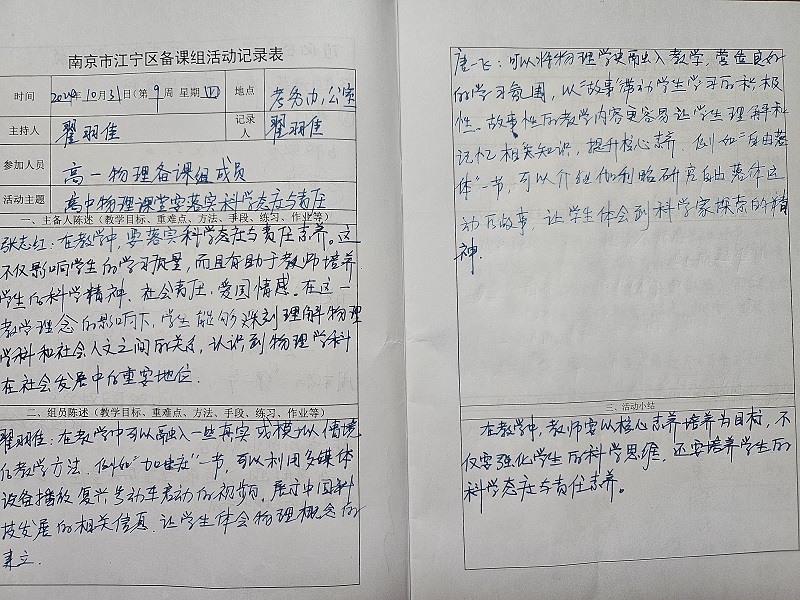 南京市江宁区备课组活动记录表
时间 2024年10月31日(第9周 星期四) 地点 考务办公室
主持人 翟羽佳 记录人 翟羽佳
参加人员 高一物理备课组成员
活动主题 高中物理课堂要落实科学态度与责任
一、主备人陈述（教学目标、重难点、方法、手段、练习、作业等）
张志红：在教学中，要落实科学态度与责任素养。这
不仅影响学生的学习质量，而且有助于教师培养
学生的科学精神、社会责任、爱国情感。在这一
教学理念的影响下，学生能够深刻理解物理
学科和社会人文之间的关系，认识到物理学科
在社会发展中的重要地位.
二、组员陈述（教学目标、重难点、方法、手段、练习、作业等）
翟羽佳：在教学中可以融入一些真实或模拟情境
的教学方法.例如"加速度"一节，可以利用多媒体
设备播放复兴号动车启动的视频，展示中国科
技发展的相关信息.让学生体会物理概念的
建立.
唐一飞：可以将物理学史融入教学，营造良好
的学习氛围，以"故事"带动学生学习的积极
性。故事性的教学内容更容易让学生理解和
记忆相关知识，提升核心素养.例如"自由落
体"一节，可以介绍伽利略研究自由落体运
动的故事，让学生体会到科学家探索的精
神.
三、活动小结
在教学中，教师要以核心素养培养为目标，不
仅要强化学生的科学思维，还要培养学生的
科学态度与责任素养。